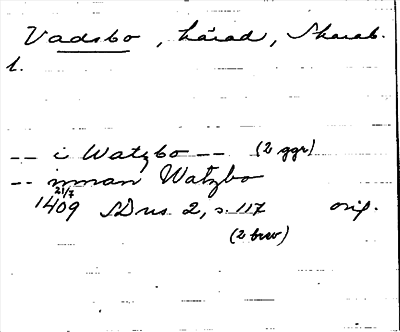 Vadsbo, härad, Skarab.
l.
-- i Watzbo -- (2 ggr)
-- innan Watzbo
21/7
1409 SD ns 2, s. 117 orig.
(2 brev)